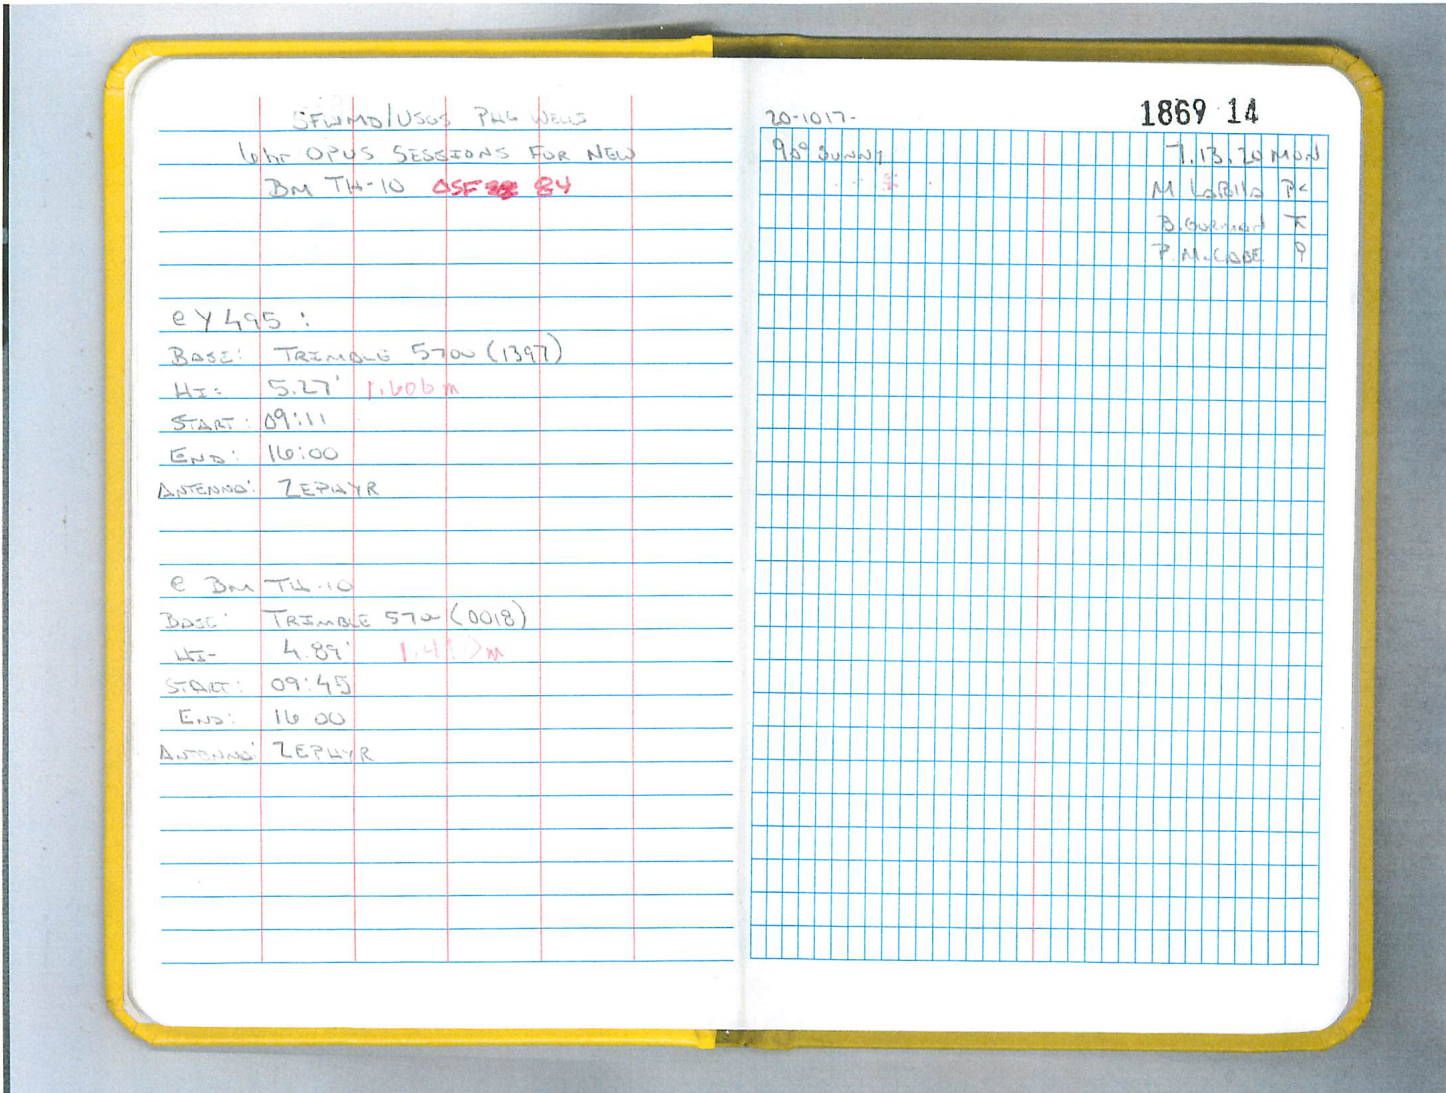 SFWMD/USGS PHG WELLS
6hr OPUS SESSIONS FOR NEW
BM TH-10 OSF 84
@ Y495:
BASE: TRIMBLE 5700 (1397)
HI: 5.27' 1.606m
START: 09:11
END: 16:00
ANTENNA: ZEPHYR
@ BM TH-10
BASE: TRIMBLE 5700 (0018)
HI- 4.89' m
START: 09:45
END: 16 00
ANTENNA: ZEPHYR
20-1017-
1869 14
90° SUNNY
7.13.20 MON
M.
B. GORMAN
P. McCABE